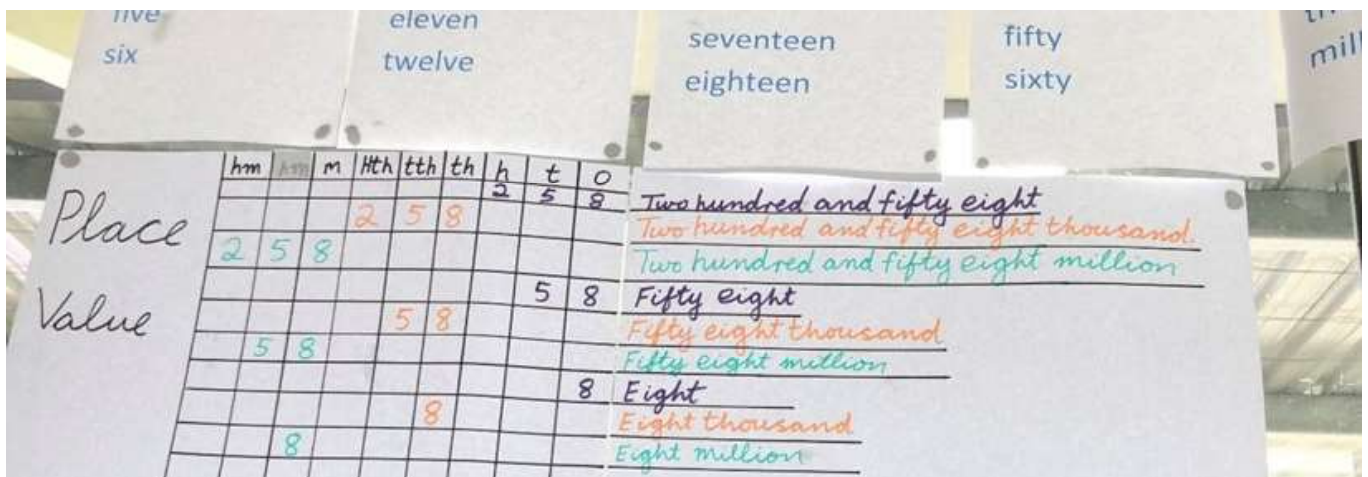 five
six
eleven
twelve
seventeen
eighteen
fifty
sixty
mill
Place
Value
hm hm m Hth tth th h t o
2 5 8 Two hundred and fifty eight
2 5 8 Two hundred and fifty eight thousand.
2 5 8 Two hundred and fifty eight million
5 8 Fifty eight
5 8 Fifty eight thousand
5 8 Fifty eight million
8 Eight
8 Eight thousand
8 Eight million